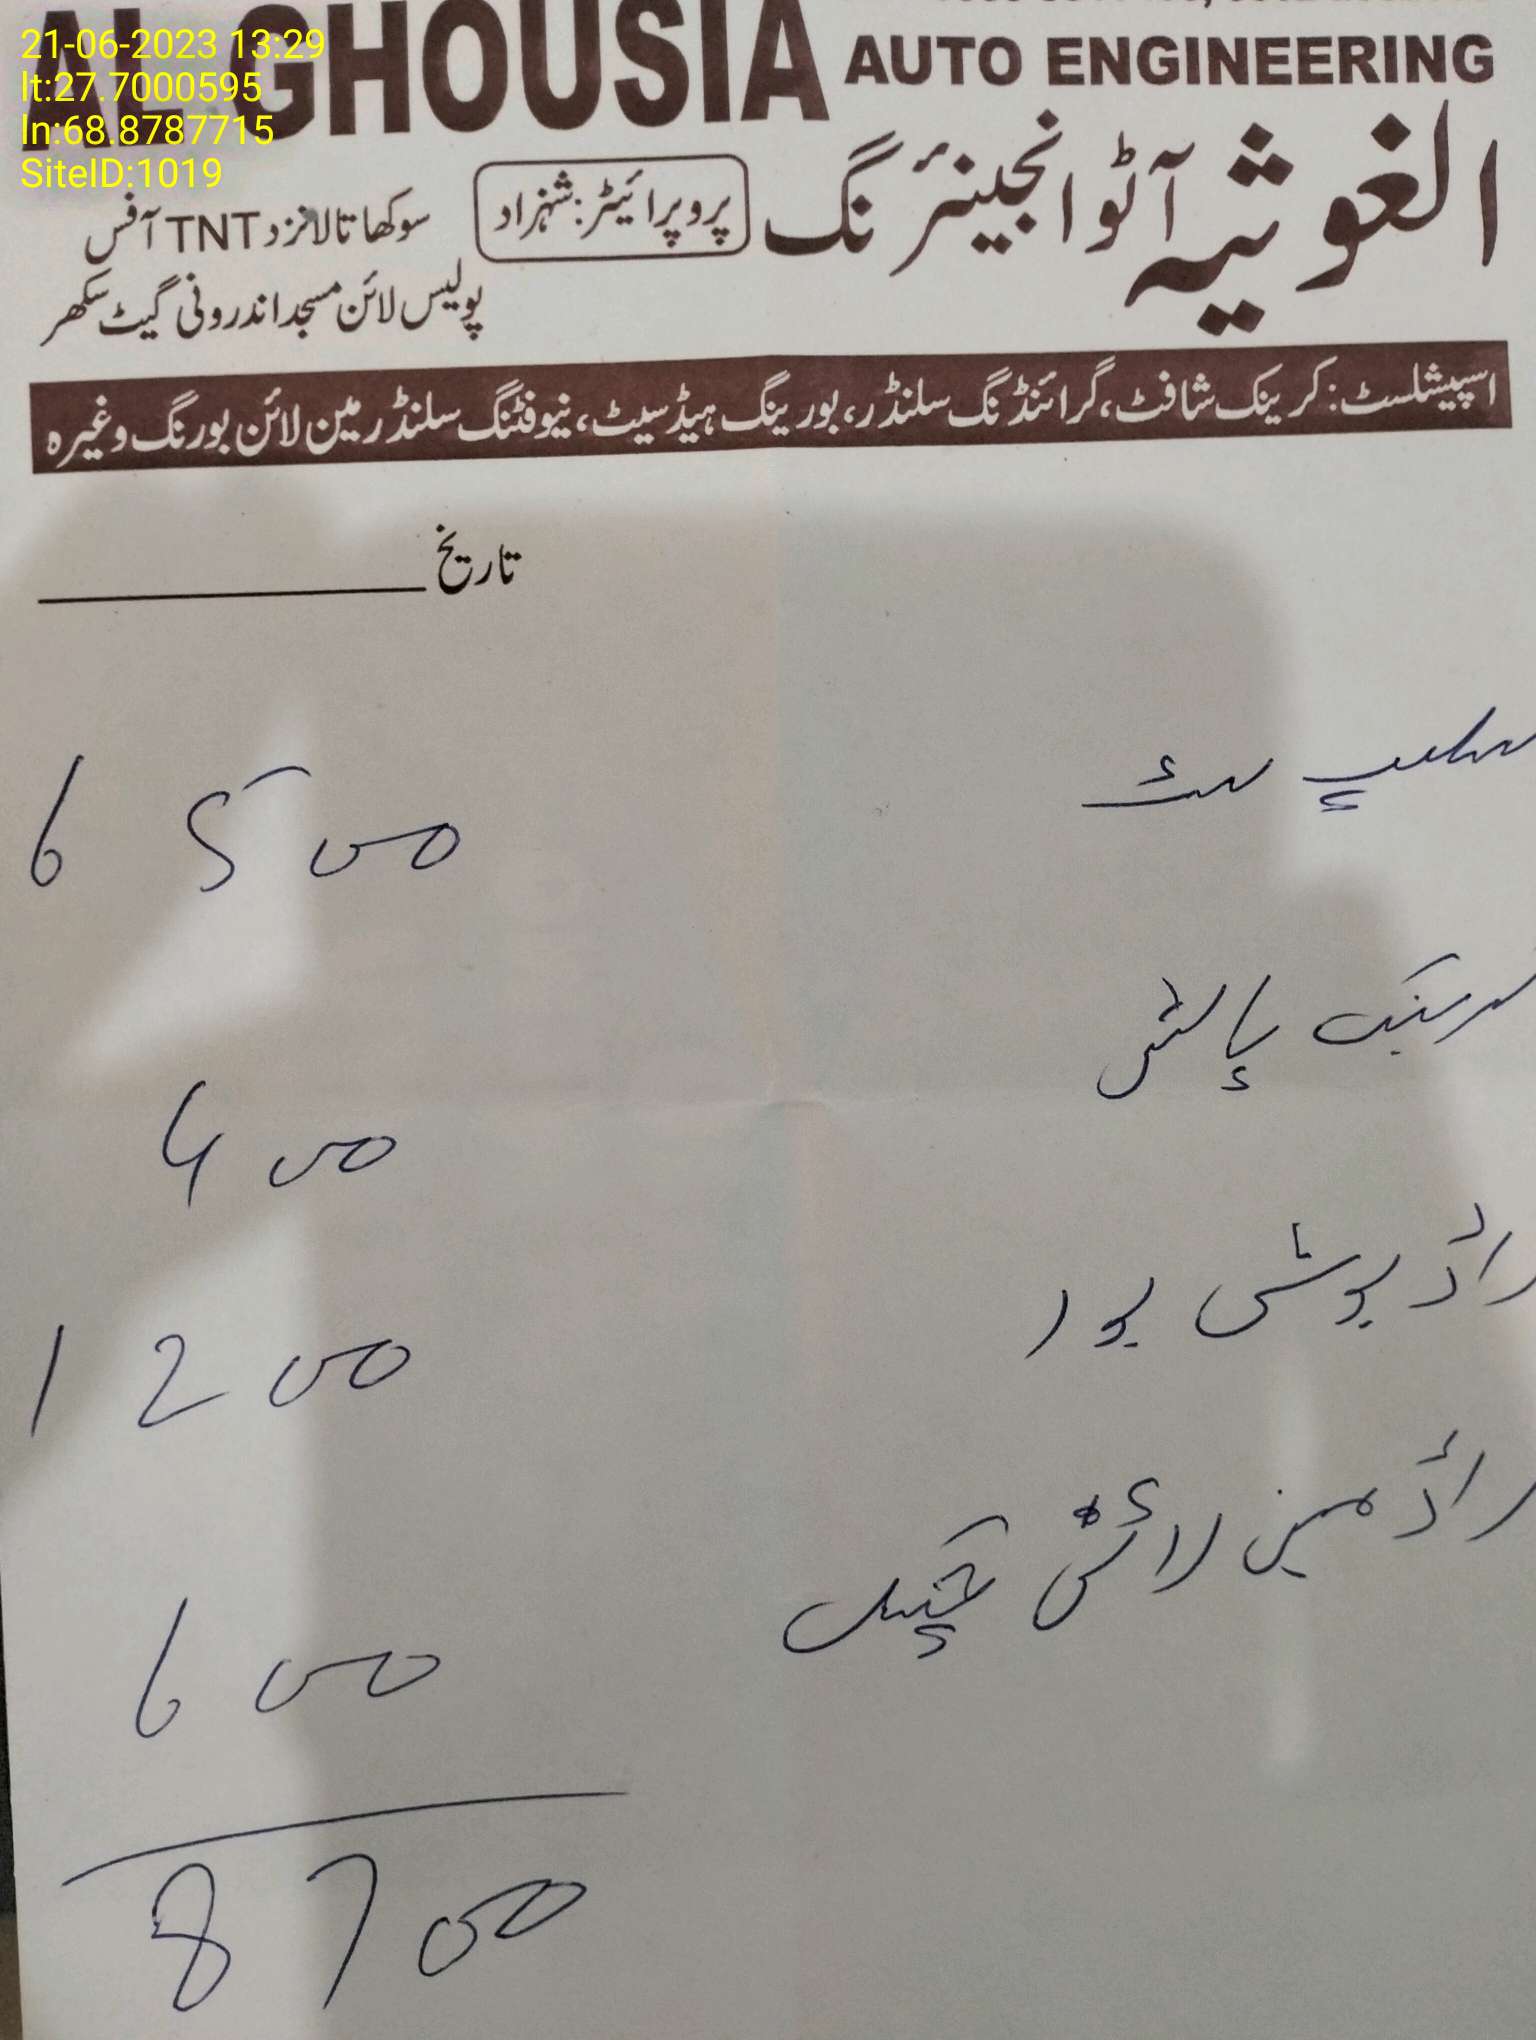 21-06-2023 13:29
lt:27.7000595
ln:68.8787715
SiteID:1019
AL-GHOUSIA AUTO ENGINEERING
الغوثیہ آٹو انجینئرنگ
پروپرائیٹر: شہزاد
سوکھا تالا نزد TNT آفس
پولیس لائن مسجد اندرونی گیٹ سکھر
اسپیشلسٹ: کرینک شافٹ، گرائنڈنگ سلنڈر، بورینگ ہیڈ سیٹ، نیو فٹنگ سلنڈر مین لائن بورنگ وغیرہ
تاریخ
سلیپ سٹ 6500
کرینک پالش 400
راڈ بوش بور 1200
راڈ مین لائن 600
8700